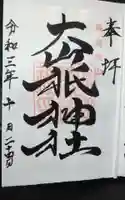 奉拝
大山祇神社
令和三年十月二十四日